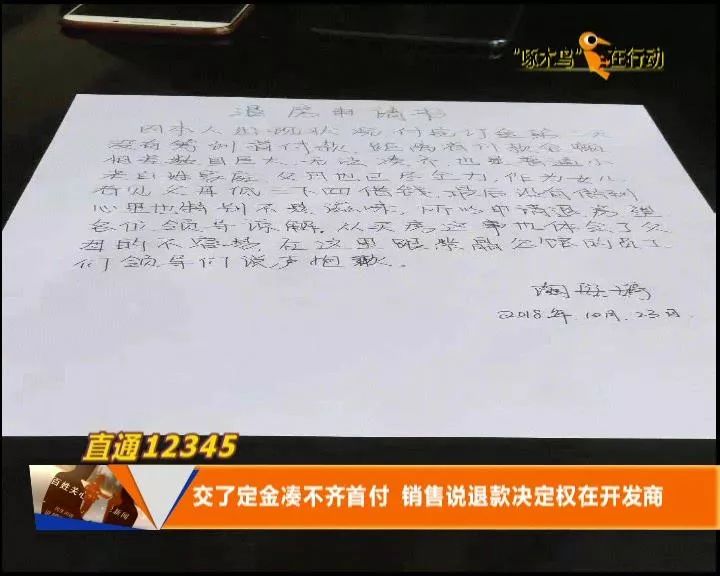 "啄木鸟"在行动
退房申请书
因本人的现状况 付完订金第一天
没有筹到首付款,距离首付款金额
相差数目巨大,无法凑齐也是普通小
老百姓家庭,父母也已尽全力,作为女儿
看见父母低三下四借钱,最后没有借到
心里也特别不是滋味,所以申请退房望
各位领导谅解,从买房这事也体会了父
母的不容易,在这里跟紫融公馆的员工
们领导们说声抱歉。
陶
2018.年.10月.23日.
直通12345
百姓关心
新闻
交了定金凑不齐首付 销售说退款决定权在开发商